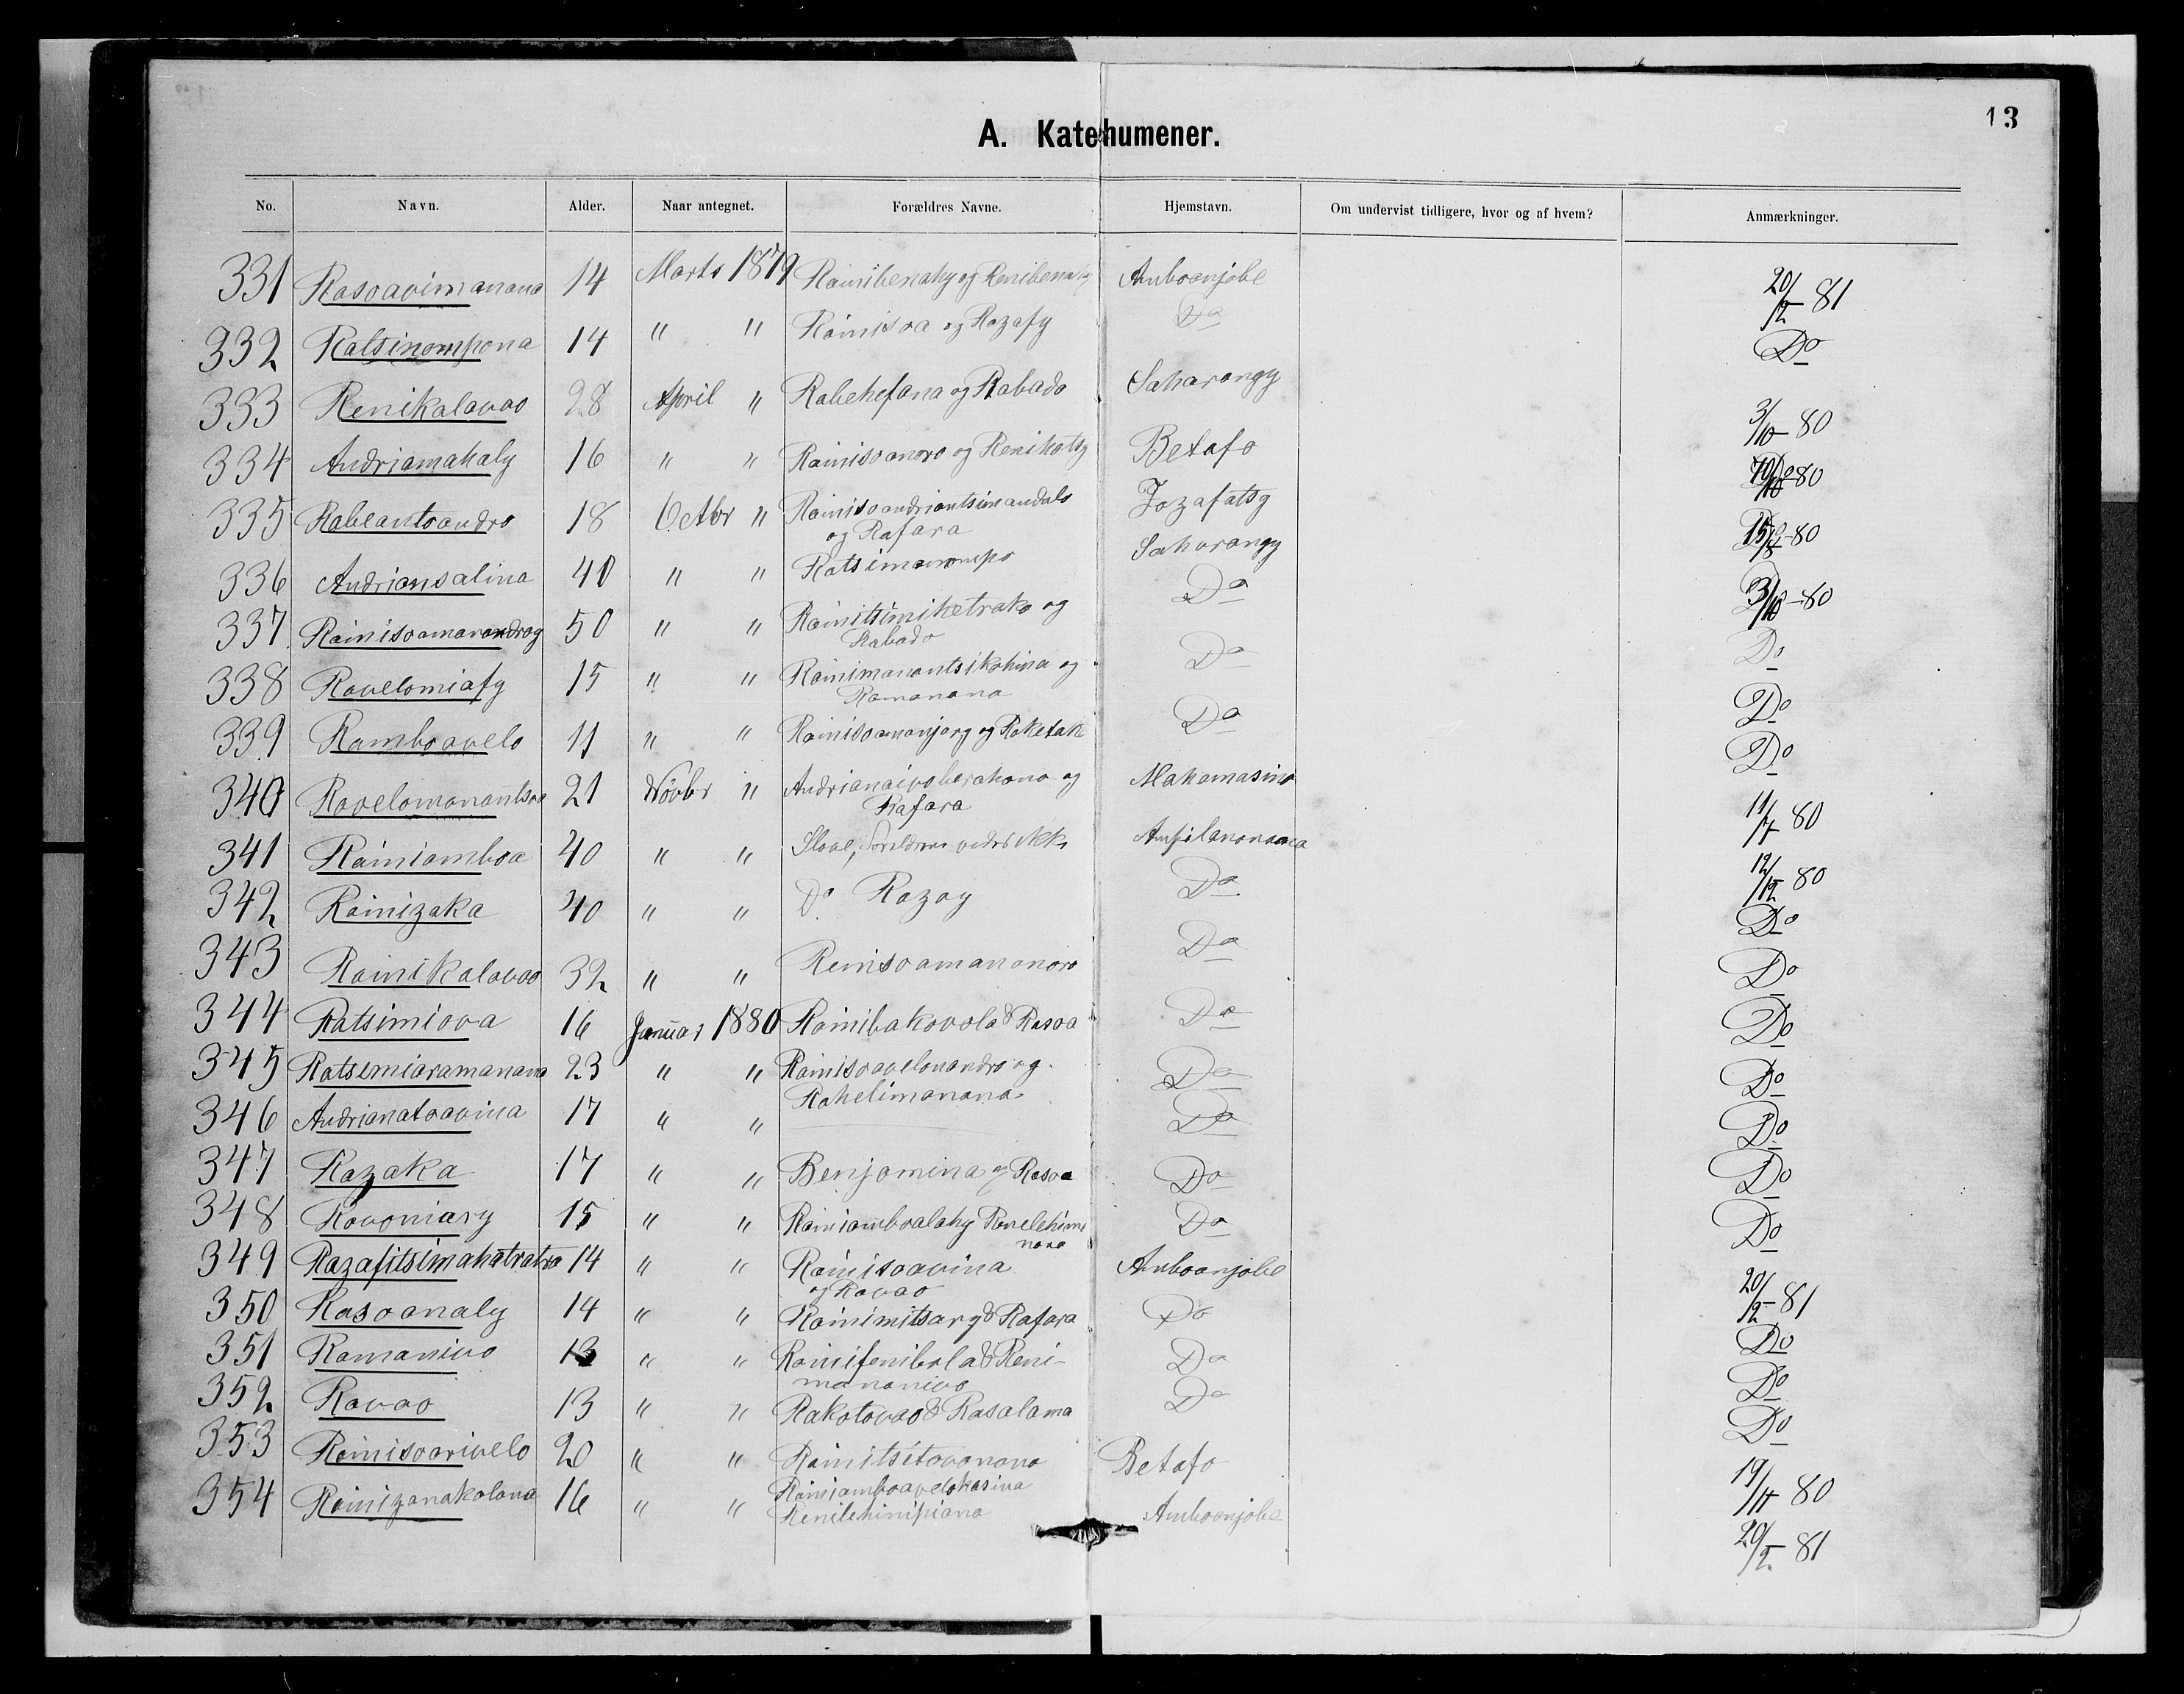 13
A. Katehumener.
No. Navn. Alder. Naar antegnet. Forældres Navne. Hjemstavn. Om undervist tidligere, hvor og af hvem? Anmærkninger.
331 Rasoavimanana 14 Marts 1879 Rainibenahy og Renibenahy Amboanjobe 20/2 - 81
332 Ratsinompona 14 " " Rainisoa og Razafy Do Do
333 Renikalavao 28 April " Rabehefana og Rabado Saharangy 3/10 - 80
334 Andriamahaly 16 " " Rainisoanoro og Renikotsy Betafo 80
335 Rabeantoandro 18 Octbr " Rainisoandriantsimandalo Jozafatsy 80
og Rafara
336 Andriansalina 40 " " Ratsimanompo Saharangy 3/10 - 80
337 Rainisoamanandroy 50 " " Rainitsimihetrako og Do Do
Rabado
338 Ravelomiafy 15 " " Rainimanantsikohina og Do Do
Ramanana
339 Ramboavelo 11 " " Rainisoamanjary og Raketaka Do Do
340 Ravelomanantsoa 21 Novbr " Andrianaivoberahona og Mahamasina 11/7 80
Rafara
341 Rainiamboa 40 " " Slave, Forældrene vides ikke Ampilanonana 12/12 80
342 Rainizaka 40 " " Do Razay Do Do
343 Rainikalavao 32 " " Renisoamananoro Do Do
344 Ratsimiova 16 Januar 1880 Rainibakovola & Rasoa Do Do
345 Ratsimiaramanana 23 " " Rainisoavelonandro og Do Do
Rahelimanana
346 Andrianatoavina 17 " " Do Do
347 Razaka 17 " " Benjamina og Rasoa Do Do
348 Ravoniary 15 " " Rainiamboalahy Renelehima Do Do
nana
349 Razafitsimahatratra 14 " " Rainisoavina Amboanjobe 20/2 - 81
og Ravao
350 Rasoanaly 14 " " Rainimitsary & Rafara Do Do
351 Ramanivo 13 " " Rainifenibola & Reni- Do Do
mananivo
352 Ravao 13 " " Rakotovao & Rasalama Do Do
353 Rainisoarivelo 20 " " Rainitsitovanana Betafo 19/11 80
354 Rainizanakolona 16 " " Rainiamboavelokasina Amboanjobe 20/2 - 81
Renilehinipiana